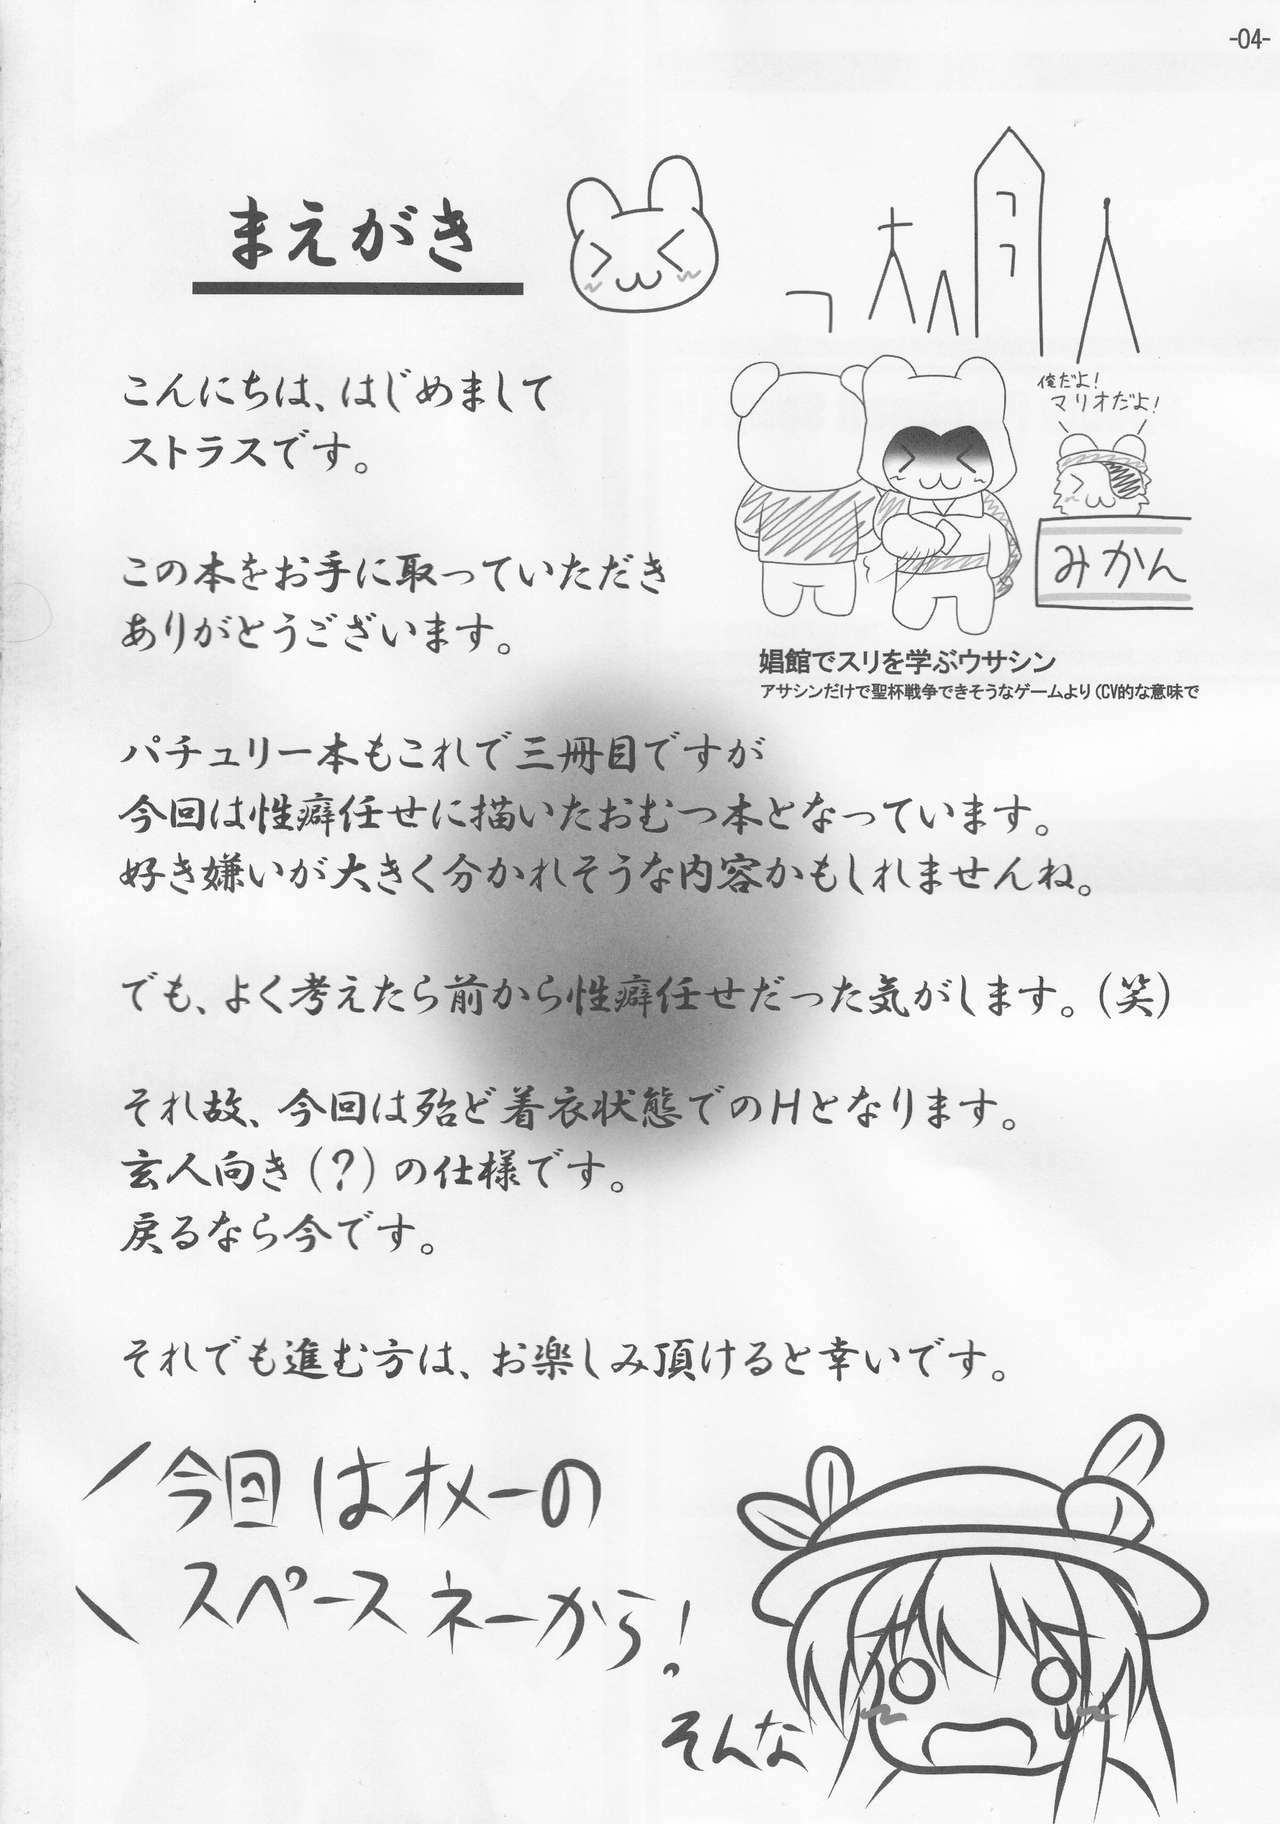 -04-
まえがき
こんにちは、はじめまして
ストラスです。
この本をお手に取っていただき
ありがとうございます。
俺だよ!
マリオだよ!
みかん
娼館でスリを学ぶウサシン
アサシンだけで聖杯戦争できそうなゲームより(CV的な意味で
パチュリー本もこれで三冊目ですが
今回は性癖任せに描いたおむつ本となっています。
好き嫌いが大きく分かれそうな内容かもしれませんね。
でも、よく考えたら前から性癖任せだった気がします。(笑)
それ故、今回は殆ど着衣状態でのHとなります。
玄人向き(?)の仕様です。
戻るなら今です。
それでも進む方は、お楽しみ頂けると幸いです。
今回はオメーの
スペースネーから!
そんな